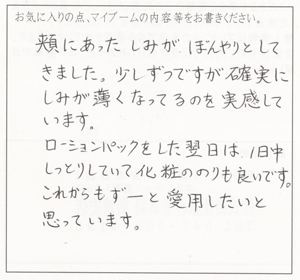 お気に入りの点、マイブームの内容等をお書きください。
頬にあった しみが、ぼんやりとして
きました。少しずつですが確実に
しみが薄くなってるのを実感して
います。
ローションパックをした翌日は、1日中
しっとりしていて化粧ののりも良いです。
これからもずーと愛用したいと
思っています。